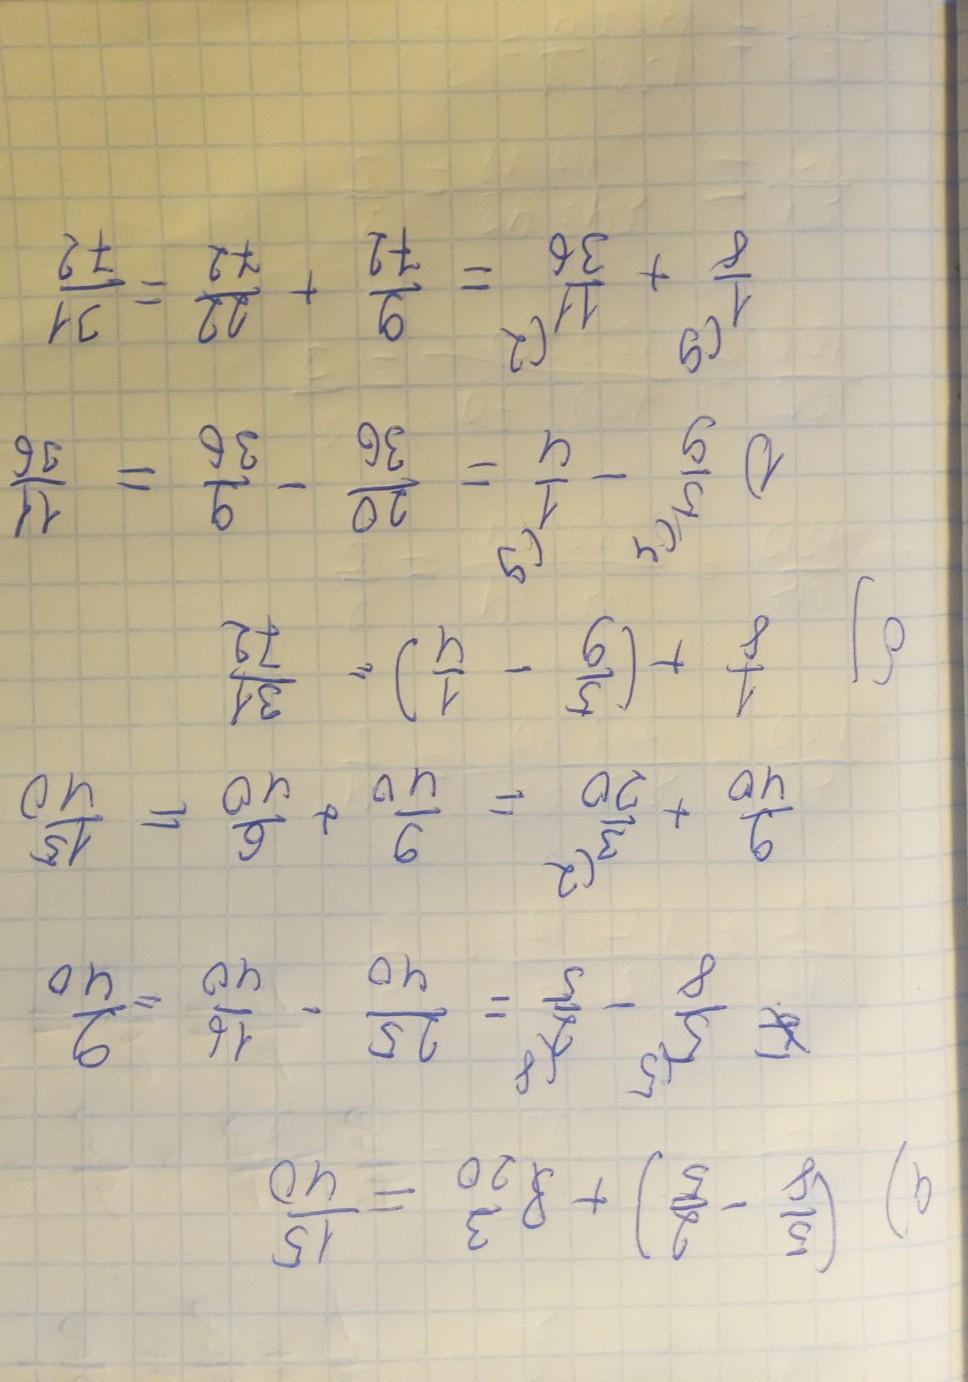 а) (5/8 - 2/5) + 3/20 = 15/40
5/8 (5 - 2/5 (8 = 25/40 - 16/40 = 9/40
9/40 + 3/20 (2 = 9/40 + 6/40 = 15/40
б) 1/8 + (5/9 - 1/4) = 31/72
1) 5/9 (4 - 1/4 (9 = 20/36 - 9/36 = 11/36
1/8 (9 + 11/36 (2 = 9/72 + 22/72 = 31/72